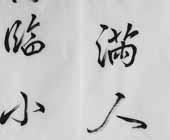 满人
临小